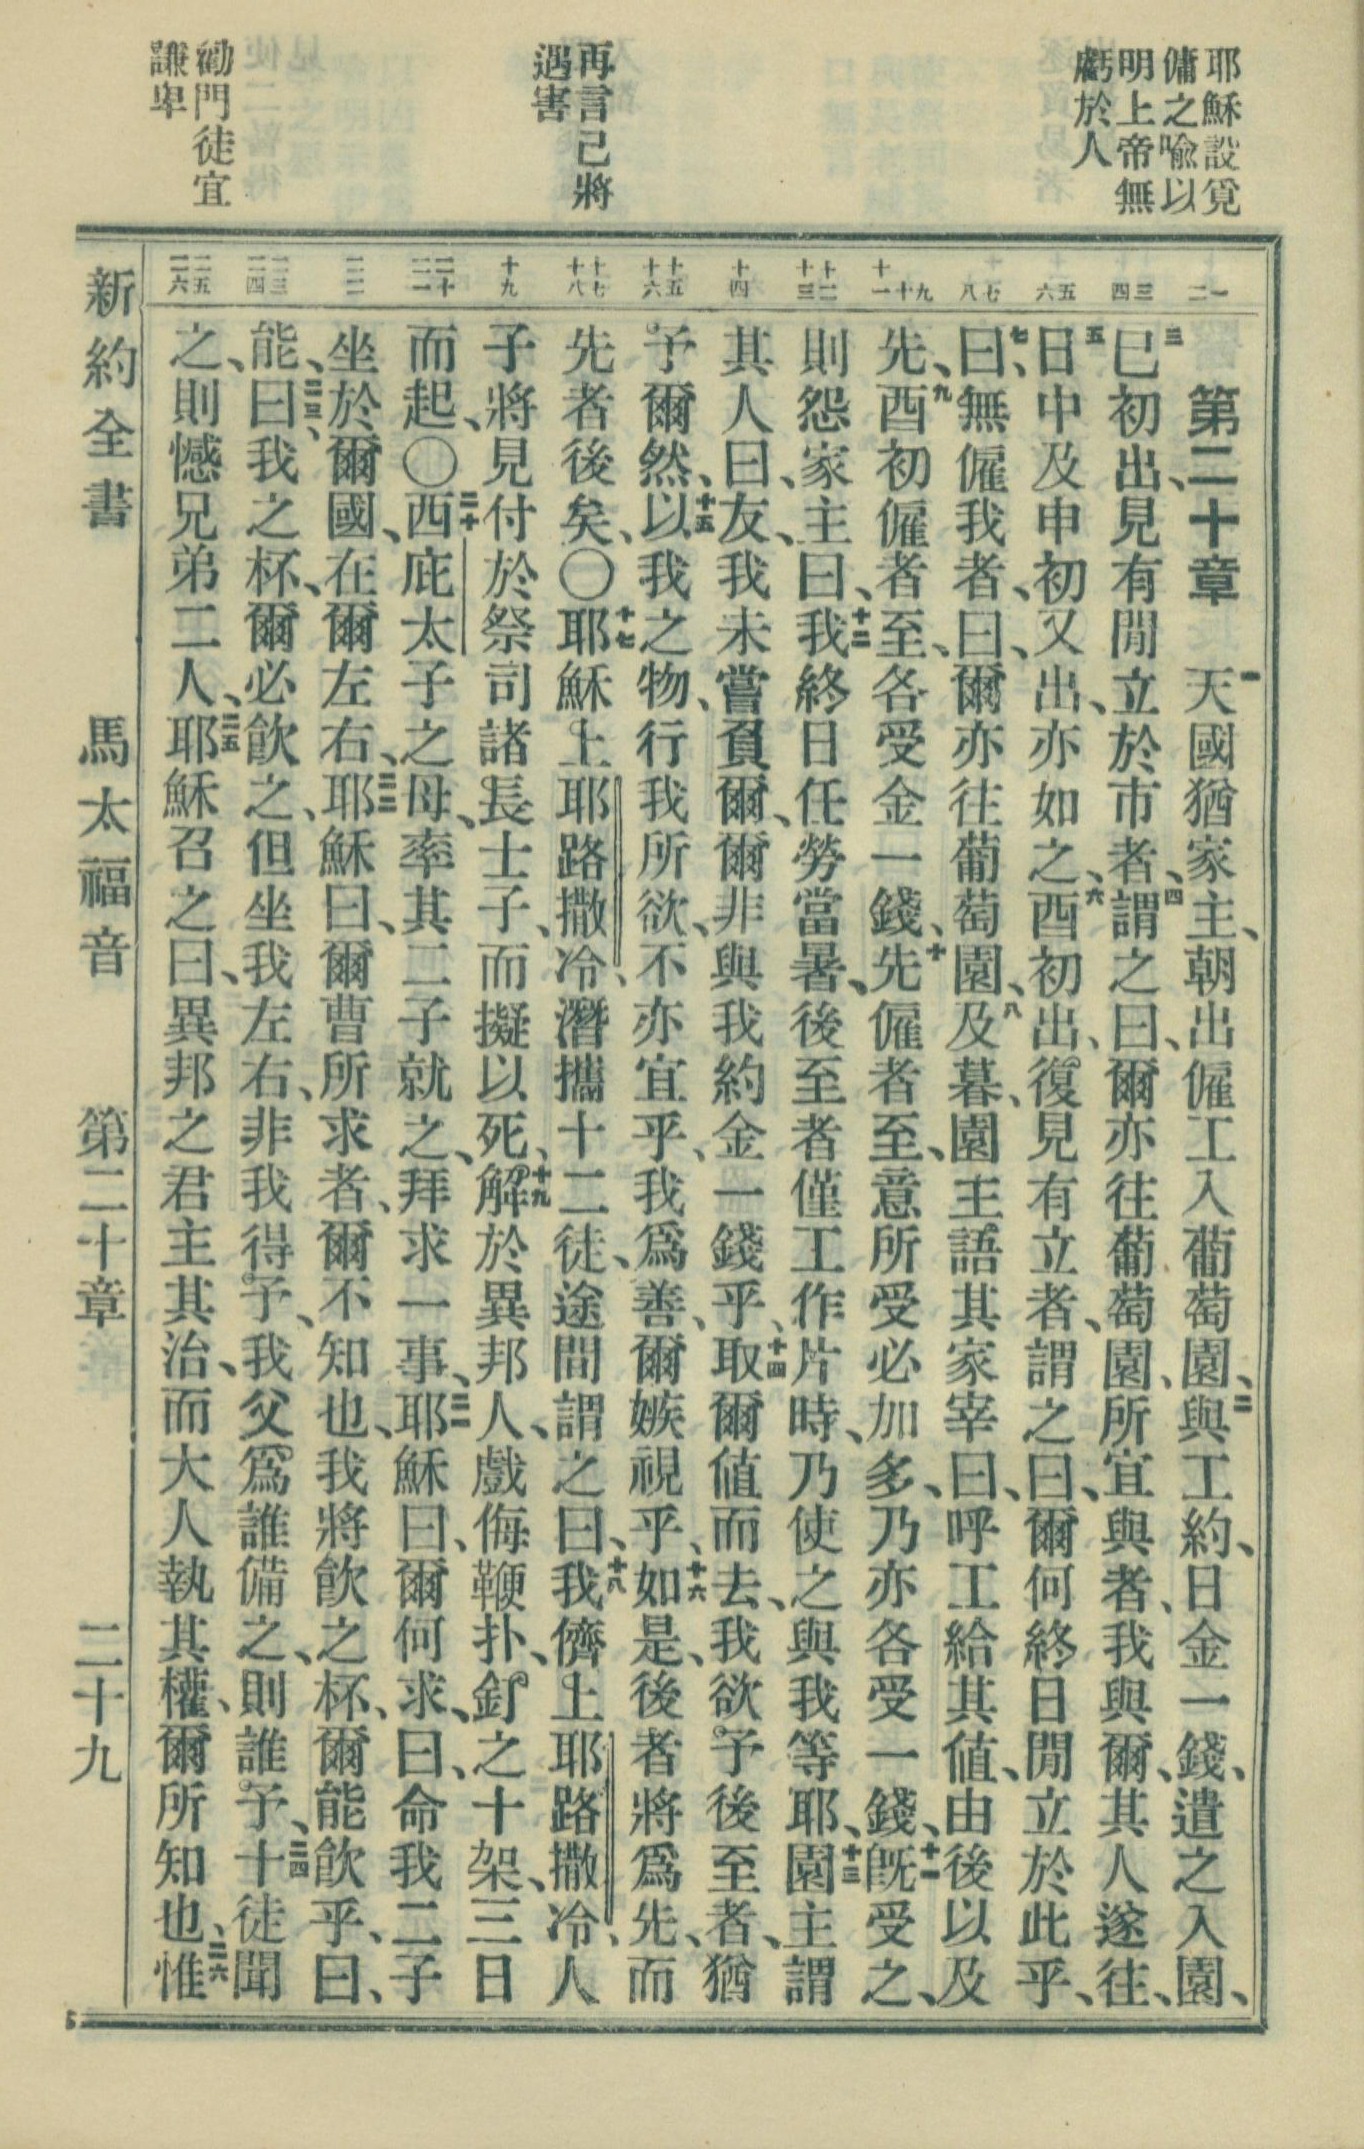 耶穌設覓
傭之喻以
明上帝無
虧於人
再言己將
遇害
勸門徒宜
謙卑
一二
三四
五六
七八
九十十一
十二十三
十四
十五十六
十七十八
十九
二十二一
二二
二三二四
二五二六
第二十章　一天國猶家主、朝出僱工入葡萄園、二與工約、日金一錢、遣之入園、
三巳初出、見有閒立於市者、四謂之曰、爾亦往葡萄園、所宜與者、我與爾、其人遂往、
五日中及申初又出、亦如之、六酉初出、復見有立者、謂之曰、爾何終日閒立於此乎、
七曰、無僱我者、曰、爾亦往葡萄園、八及暮、園主語其家宰曰、呼工給其值、由後以及
先、九酉初僱者至、各受金一錢、十先僱者至、意所受必加多、乃亦各受一錢、十一既受之、
則怨家主曰、十二我終日任勞當暑、後至者僅工作片時、乃使之與我等耶、十三園主謂
其人曰、友、我未嘗負爾、爾非與我約金一錢乎、十四取爾值而去、我欲予後至者、猶
予爾然、十五以我之物、行我所欲、不亦宜乎、我爲善、爾嫉視乎、十六如是、後者將爲先、而
先者後矣、〇十七耶穌上耶路撒冷、潛攜十二徒、途間謂之曰、十八我儕上耶路撒冷、人
子將見付於祭司諸長士子、而擬以死、十九解於異邦人、戲侮鞭扑、釘之十架、三日
而起、〇二十西庇太子之母、率其二子就之、拜求一事、二一耶穌曰、爾何求、曰、命我二子
坐於爾國、在爾左右、二二耶穌曰、爾曹所求者、爾不知也、我將飮之杯、爾能飮乎、曰、
能、二三曰、我之杯、爾必飮之、但坐我左右、非我得予、我父爲誰備之、則誰予、二四十徒聞
之、則憾兄弟二人、二五耶穌召之曰、異邦之君主其治、而大人執其權、爾所知也、二六惟
新約全書　馬太福音　第二十章　二十九